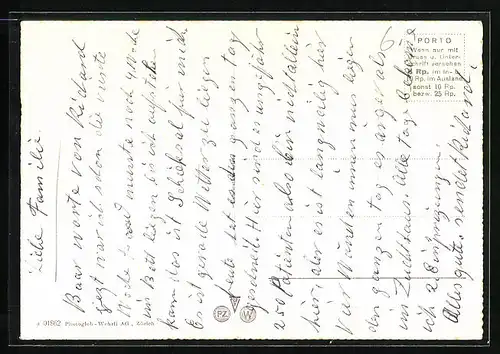 Liebe Familie.
Paar worte von Richard
jezt war ich schon die vierte
Woche und muste noch 9 Woche
im Bett liegen bis ich aufstehen
kann das ist Schicksal für mich
Es ist gerade Wetter zu liegen
heute hat es den ganzen tag
geschneit. Hier sind es ungefähr
250 Patienten also bin nicht allein
hier, aber es ist langweilig hier
vier Wänden immer muss liegen
den ganzen tag es erger als
im Zuchthaus. Alle tage bekomme
ich 2 Einsprizungen.
Alles gute sendet Richard!
PORTO
Wenn nur mit
Gruss u. Unter-
schrift versehen
Rp. im In-
Rp. im Ausland
sonst 10 Rp.
bezw. 25 Rp.
01862 Photoglob-Wehrli AG., Zürich
PZ W